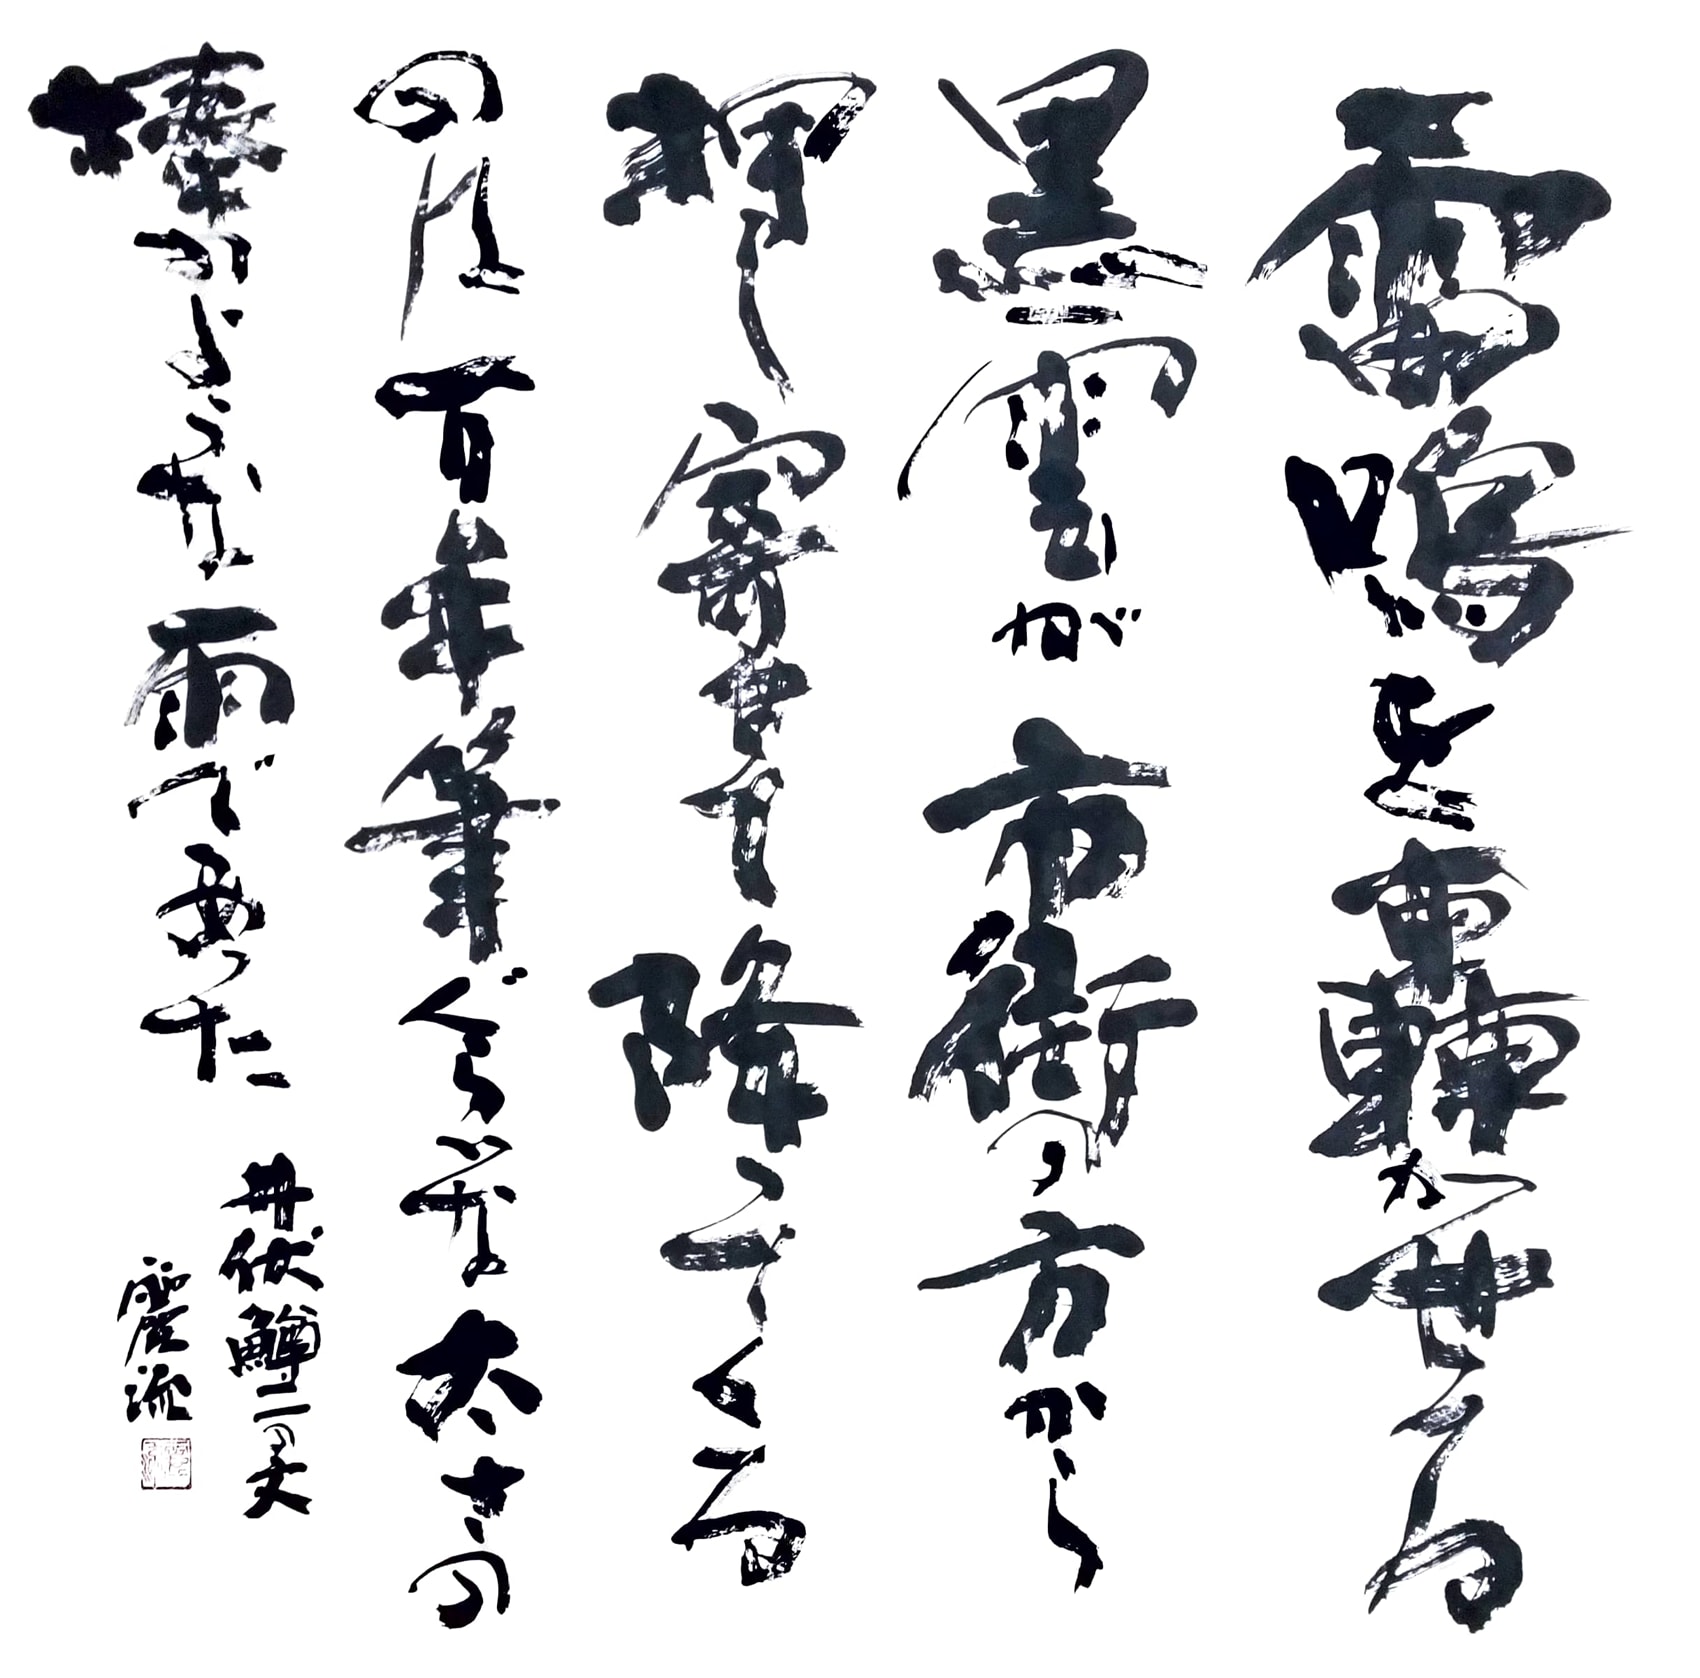 雷鳴を轟かせる
黒雲が市街の方から
押し寄せて降ってくる
のは万年筆ぐらいな太さの
棒のような雨であった
井伏鱒二の文
麗流